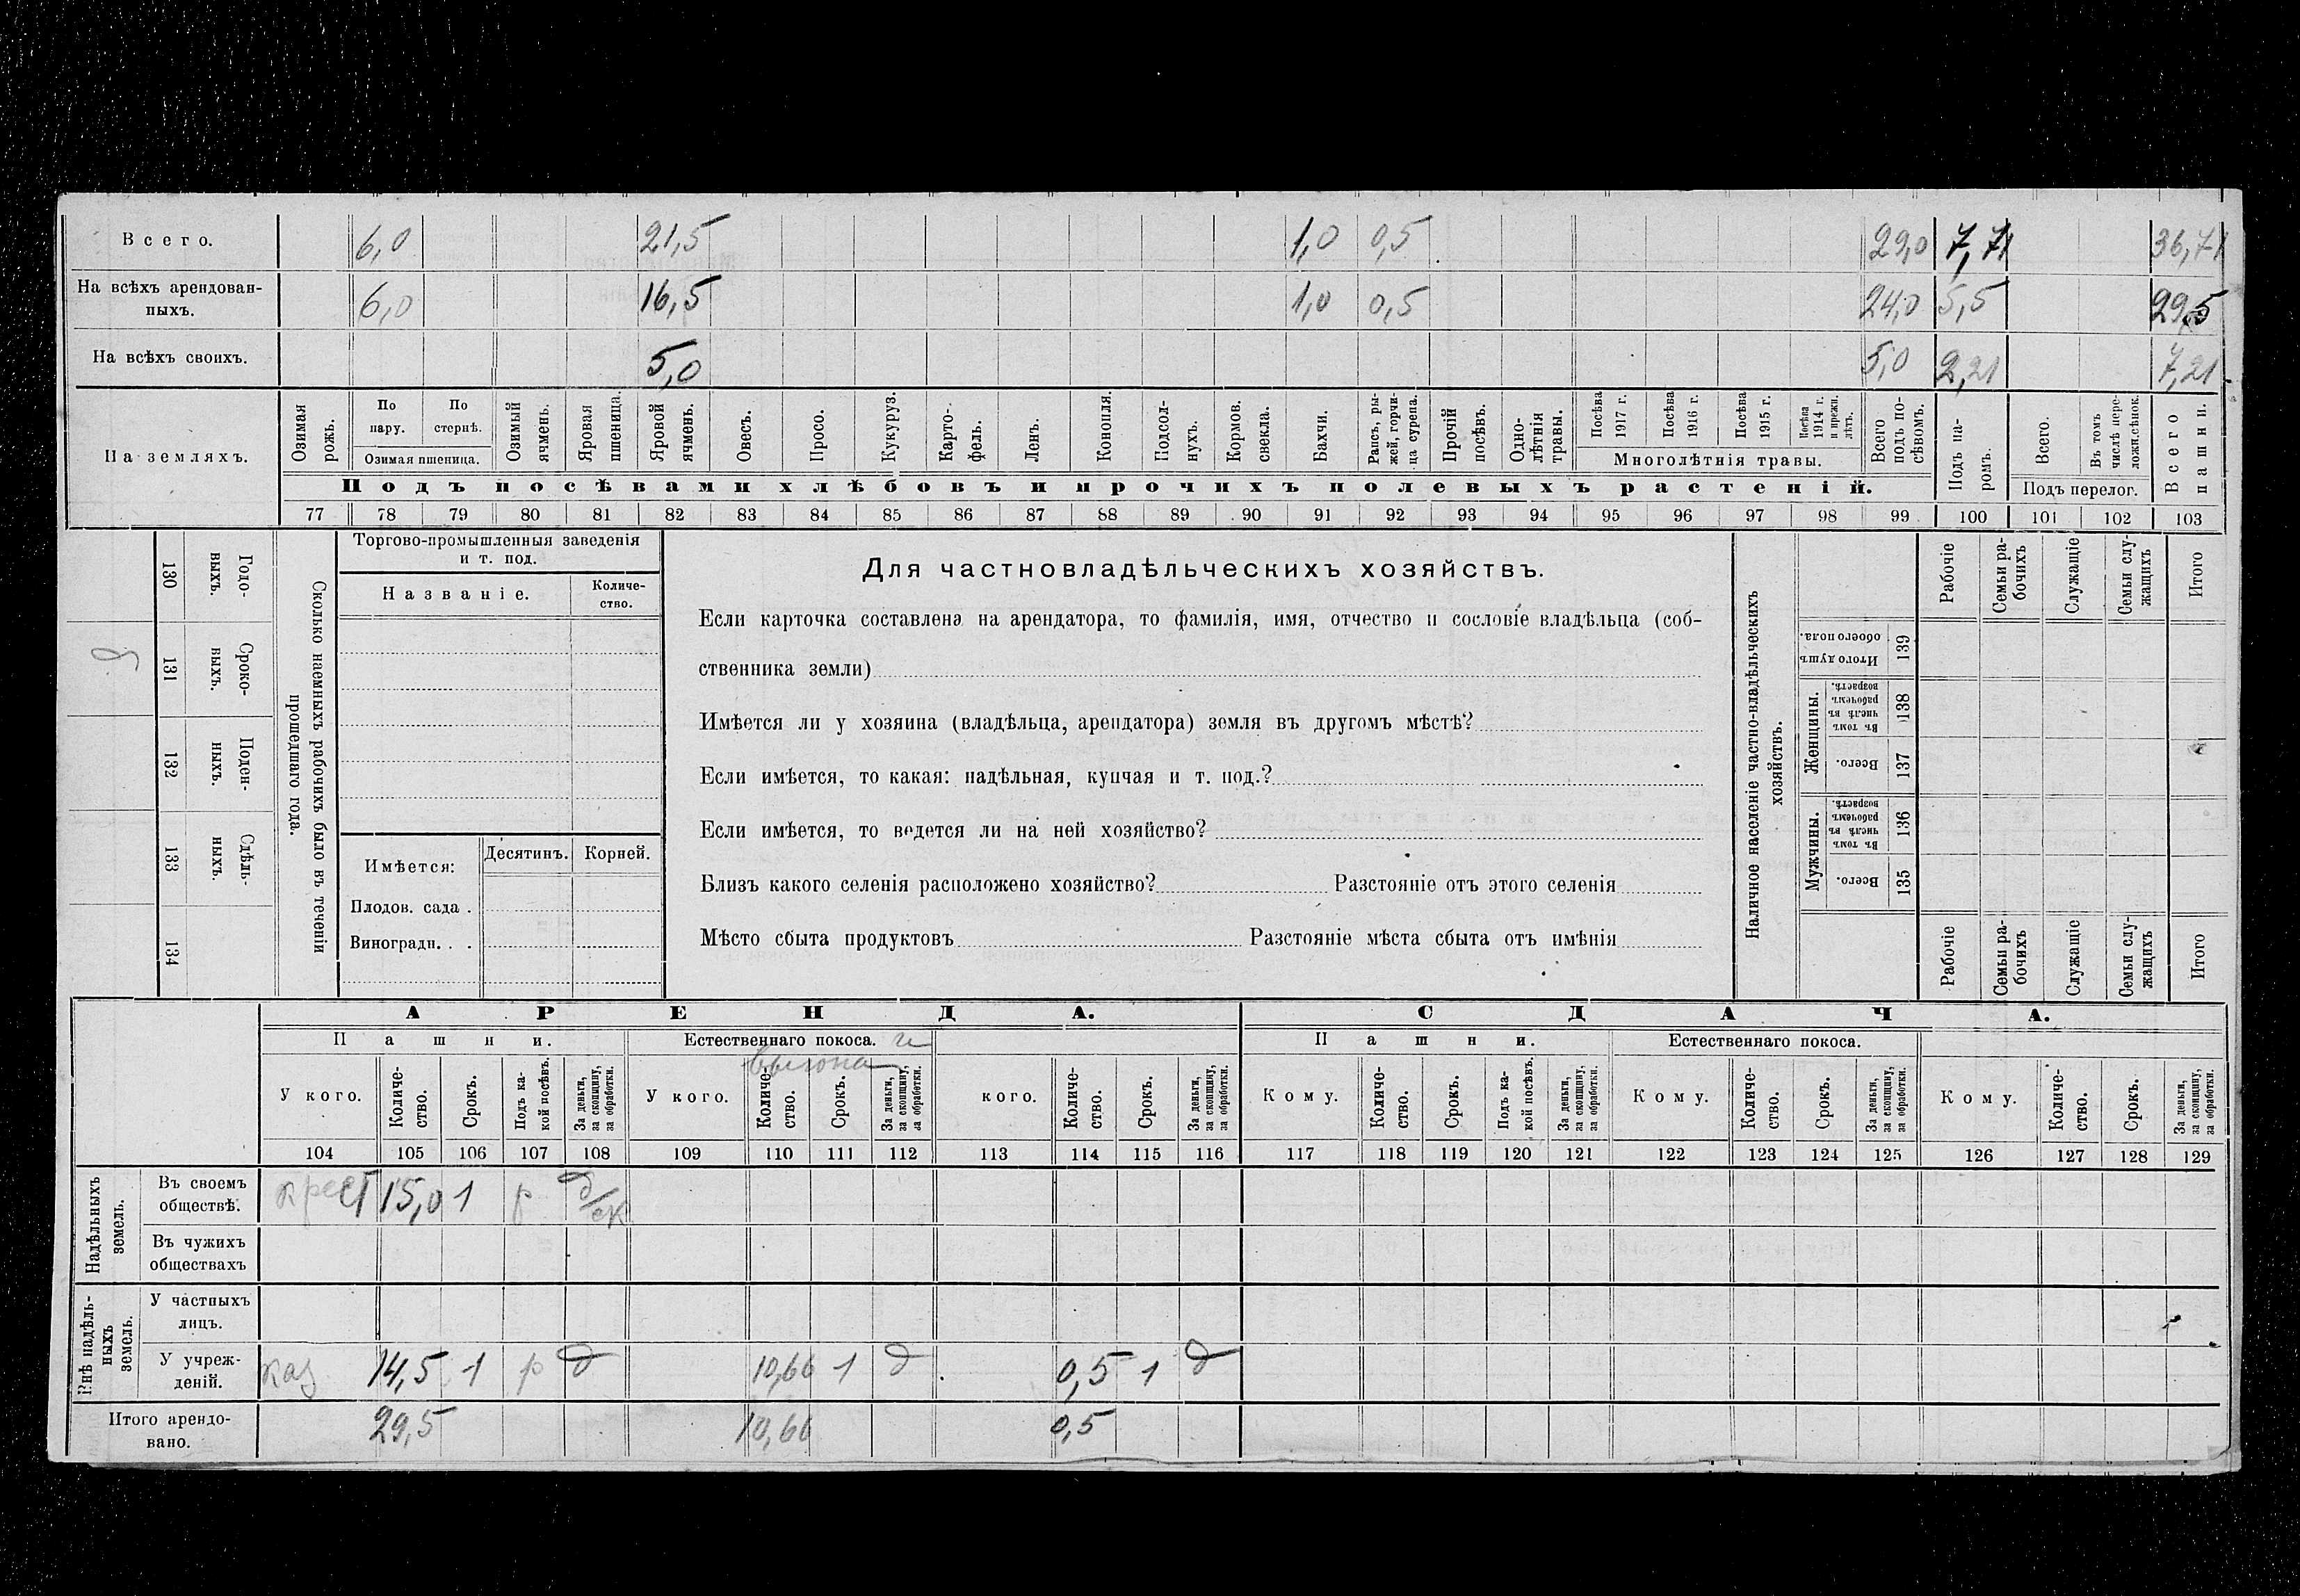 Всего. 6,0 21,5 1,0 0,5 29,0 7,71 36,71
На всѣхъ арендован-
ныхъ. 6,0 16,5 1,0 0,5 24,0 5,5 29,5
На всѣхъ своихъ. 5,0 5,0 2,21 7,21
На земляхъ.
Озимая рожь.
По пару.
По стернѣ.
Озимая пшеница.
Озимый ячмень.
Яровая пшеница.
Яровой ячмень.
Овесъ.
Просо.
Кукуруз.
Карто-
фель.
Ленъ.
Конопля.
Подсол-
нухъ.
Кормов. свекла.
Бахчи.
Рапсъ, ры-
жей, горчи-
ца сурепа.
Прочій посѣвъ.
Одно-
лѣтнія травы.
Посѣва 1917 г.
Посѣва 1916 г.
Посѣва 1915 г.
Посѣва 1914 г. и прежн. лѣтъ.
Многолѣтнія травы.
Всего подъ по-
сѣвомъ.
Подъ па-
ромъ.
Всего.
Въ томъ числѣ пере-
ложн. сѣнок.
Подъ перелог.
Всего пашни.
Подъ посѣвами хлѣбовъ и прочихъ полевыхъ растеній.
77 78 79 80 81 82 83 84 85 86 87 88 89 90 91 92 93 94 95 96 97 98 99 100 101 102 103
130 Годо-
выхъ.
9 131 Сроко-
выхъ.
132 Поден-
ныхъ.
133 Сдѣль-
ныхъ.
134
Сколько наемныхъ рабочихъ было въ теченіи
прошедшаго года.
Торгово-промышленныя заведенія
и т. под.
Названіе.
Количе-
ство.
Имѣется: Десятинъ. Корней.
Плодов. сада .
Виноградн. . .
Для частновладѣльческихъ хозяйствъ.
Если карточка составлена на арендатора, то фамилія, имя, отчество и сословіе владѣльца (соб-
ственника земли)
Имѣется ли у хозяина (владѣльца, арендатора) земля въ другомъ мѣстѣ?
Если имѣется, то какая: надѣльная, купчая и т. под.?
Если имѣется, то ведется ли на ней хозяйство?
Близъ какого селенія расположено хозяйство? Разстояніе отъ этого селенія
Мѣсто сбыта продуктовъ Разстояніе мѣста сбыта отъ имѣнія
Наличное населеніе частно-владѣльческихъ
хозяйствъ.
Рабочіе
Семьи ра-
бочихъ
Служащіе
Семьи слу-
жащихъ
Итого
Итого душъ обоего пола. 139
Женщины.
Въ томъ числѣ въ рабочемъ возрастѣ. 138
Всего. 137
Мужчины.
Въ томъ числѣ въ рабочемъ возрастѣ. 136
Всего. 135
Рабочіе
Семьи ра-
бочихъ
Служащіе
Семьи слу-
жащихъ
Итого
АРЕНДА. СДАЧА.
Пашни. Естественнаго покоса. и Пашни. Естественнаго покоса.
выгона
У кого.
Количе-
ство.
Срокъ.
Подъ ка-
кой посѣвъ.
За деньги, за скопщину, за обработки.
У кого.
Количе-
ство.
Срокъ.
За деньги, за скопщину, за обработки.
кого.
Количе-
ство.
Срокъ.
За деньги, за скопщину, за обработки.
Кому.
Количе-
ство.
Срокъ.
Подъ ка-
кой посѣвъ.
За деньги, за скопщину, за обработки.
Кому.
Количе-
ство.
Срокъ.
За деньги, за скопщину, за обработки.
Кому.
Количе-
ство.
Срокъ.
За деньги, за скопщину, за обработки.
104 105 106 107 108 109 110 111 112 113 114 115 116 117 118 119 120 121 122 123 124 125 126 127 128 129
Надѣльныхъ земель.
Въ своемъ
обществѣ. крест 15,0 1 р д/ск
Въ чужихъ
обществахъ
Внѣ надѣль-
ныхъ земель.
У частныхъ
лицъ.
У учреж-
деній. каз 14,5 1 р д 10,66 1 д 0,5 1 д
Итого арендо-
вано. 29,5 10,66 0,5